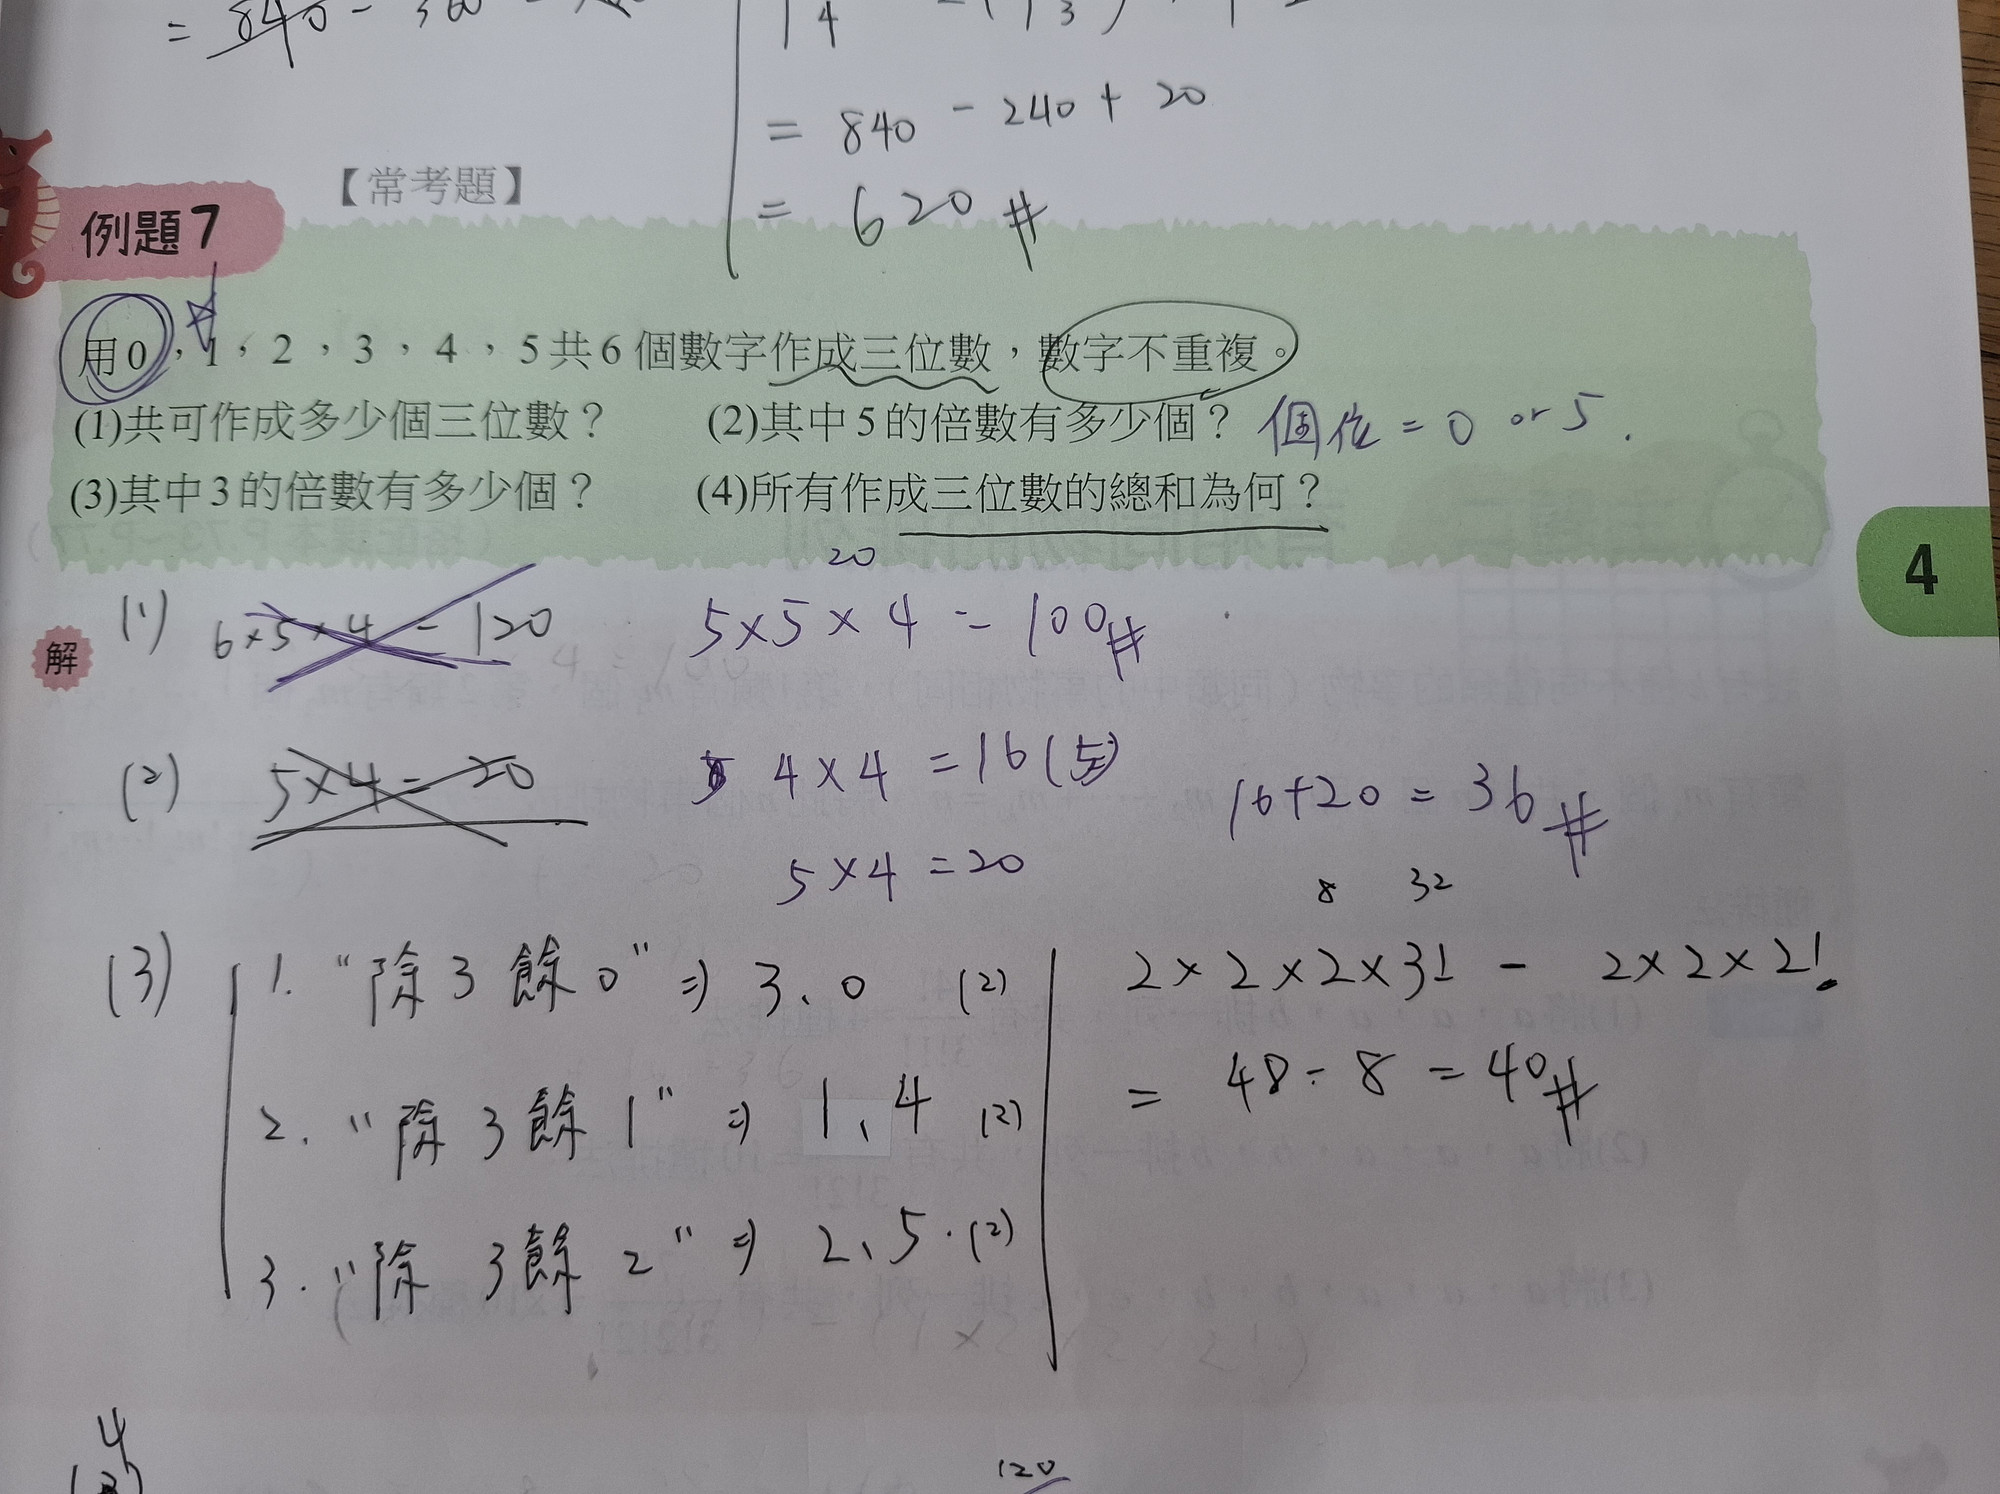 = 840 - 360
= 840 - 240 + 20
= 620 #
【常考題】
例題7
用0，1，2，3，4，5共6個數字作成三位數，數字不重複。
(1)共可作成多少個三位數？ (2)其中5的倍數有多少個？ 個位 = 0 or 5.
(3)其中3的倍數有多少個？ (4)所有作成三位數的總和為何？
4
20
解 (1) 6×5×4 = 120 5×5×4 = 100#
(2) 5×4 = 20 4×4 = 16 (5) 16+20 = 36#
5×4 = 20
8 32
(3) 1. "除3餘0" ⇒ 3、0 (2) 2×2×2×3! - 2×2×2!
2. "除3餘1" ⇒ 1、4 (2) = 48 - 8 = 40#
3. "除3餘2" ⇒ 2、5. (2)
4
120